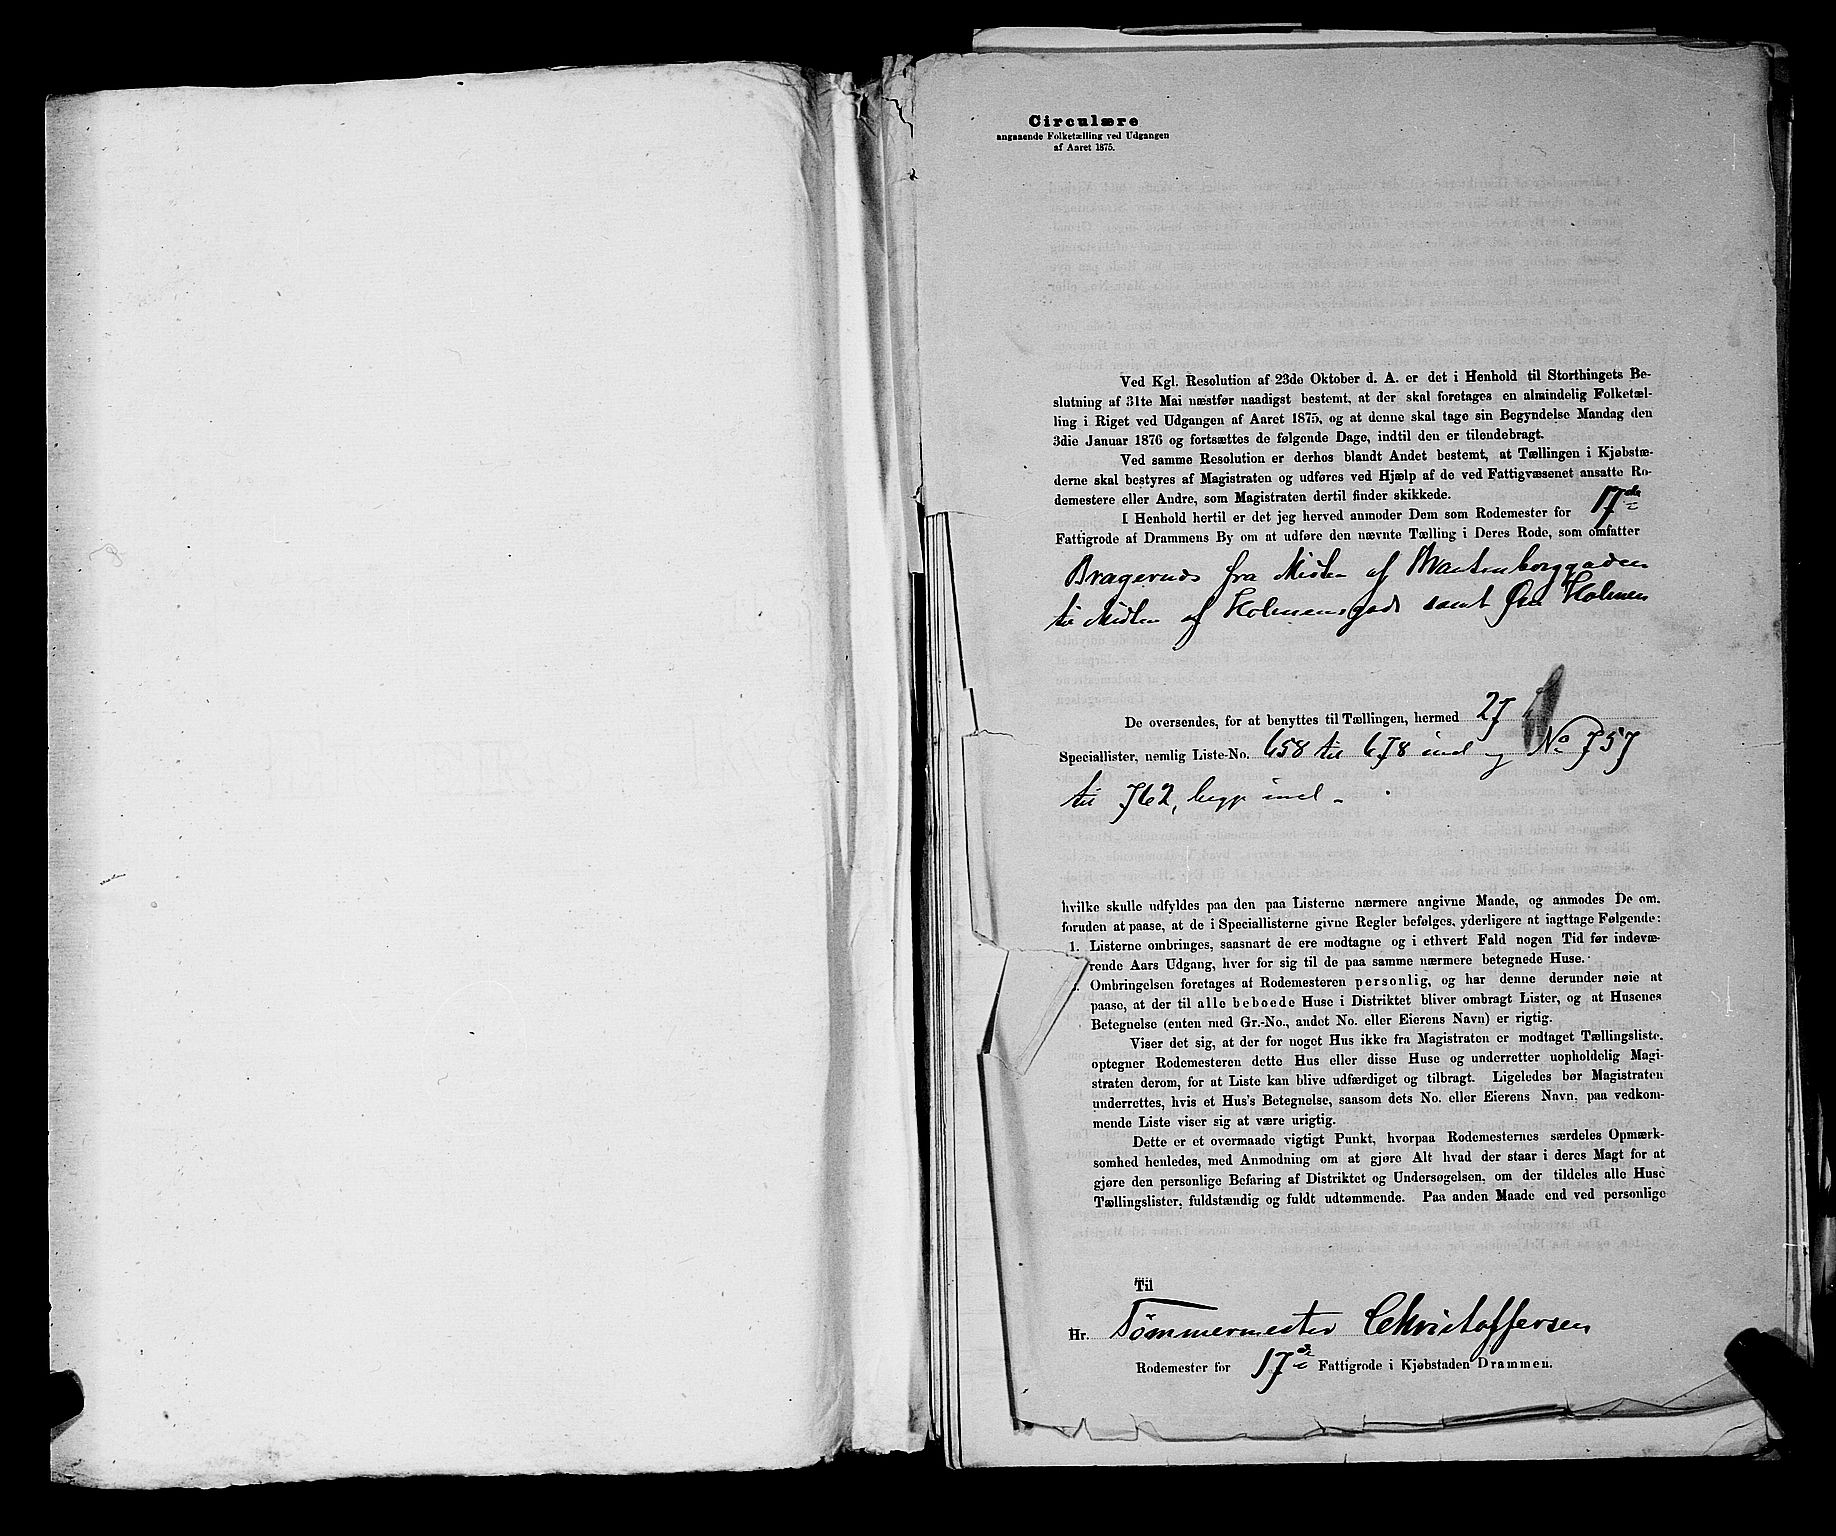 Circulære
angaaende Folketælling ved Udgangen
af Aaret 1875.
Ved Kgl. Resolution af 23de Oktober d. A. er det i Henhold til Storthingets Be-
slutning af 31te Mai næstfør naadigst bestemt, at der skal foretages en almindelig Folketæl-
ling i Riget ved Udgangen af Aaret 1875, og at denne skal tage sin Begyndelse Mandag den
3die Januar 1876 og fortsættes de følgende Dage, indtil den er tilendebragt.
Ved samme Resolution er derhos blandt Andet bestemt, at Tællingen i Kjøbstæ-
derne skal bestyres af Magistraten og udføres ved Hjælp af de ved Fattigvæsenet ansatte Ro-
demestere eller Andre, som Magistraten dertil finder skikkede.
I Henhold hertil er det jeg herved anmoder Dem som Rodemester for 17de
Fattigrode af Drammens By om at udføre den nævnte Tælling i Deres Rode, som omfatter
Bragernes fra Midten af
til Midten af Holmensgade samt Øen Holmen
De oversendes, for at benyttes til Tællingen, hermed 27
Speciallister, nemlig Liste-No. 658 til 678 incl og No 757
til 762, begge incl.
hvilke skulle udfyldes paa den paa Listerne nærmere angivne Maade, og anmodes De om.
foruden at paase, at de i Speciallisterne givne Regler befølges, yderligere at iagttage Følgende:
1. Listerne ombringes, saasnart de ere modtagne og i ethvert Fald nogen Tid før indevæ-
rende Aars Udgang, hver for sig til de paa samme nærmere betegnede Huse.
Ombringelsen foretages af Rodemesteren personlig, og har denne derunder nøie at
paase, at der til alle beboede Huse i Distriktet bliver ombragt Lister, og at Husenes
Betegnelse (enten med Gr.-No., andet No. eller Eierens Navn) er rigtig.
Viser det sig, at der for noget Hus ikke fra Magistraten er modtaget Tællingsliste.
optegner Rodemesteren dette Hus eller disse Huse og underretter uopholdelig Magi-
straten derom, for at Liste kan blive udfærdiget og tilbragt. Ligeledes bør Magistraten
underrettes, hvis et Hus's Betegnelse, saasom dets No. eller Eierens Navn, paa vedkom-
mende Liste viser sig at være urigtig.
Dette er et overmaade vigtigt Punkt, hvorpaa Rodemesternes særdeles Opmærk-
somhed henledes, med Anmodning om at gjøre Alt hvad der staar i deres Magt for at
gjøre den personlige Befaring af Distriktet og Undersøgelsen, om der tildeles alle Huse
Tællingslister, fuldstændig og fuldt udtømmende. Paa anden Maade end ved personlige
Til
Hr. Tømmermester Christoffersen
Rodemester for 17de Fattigrode i Kjøbstaden Drammen.